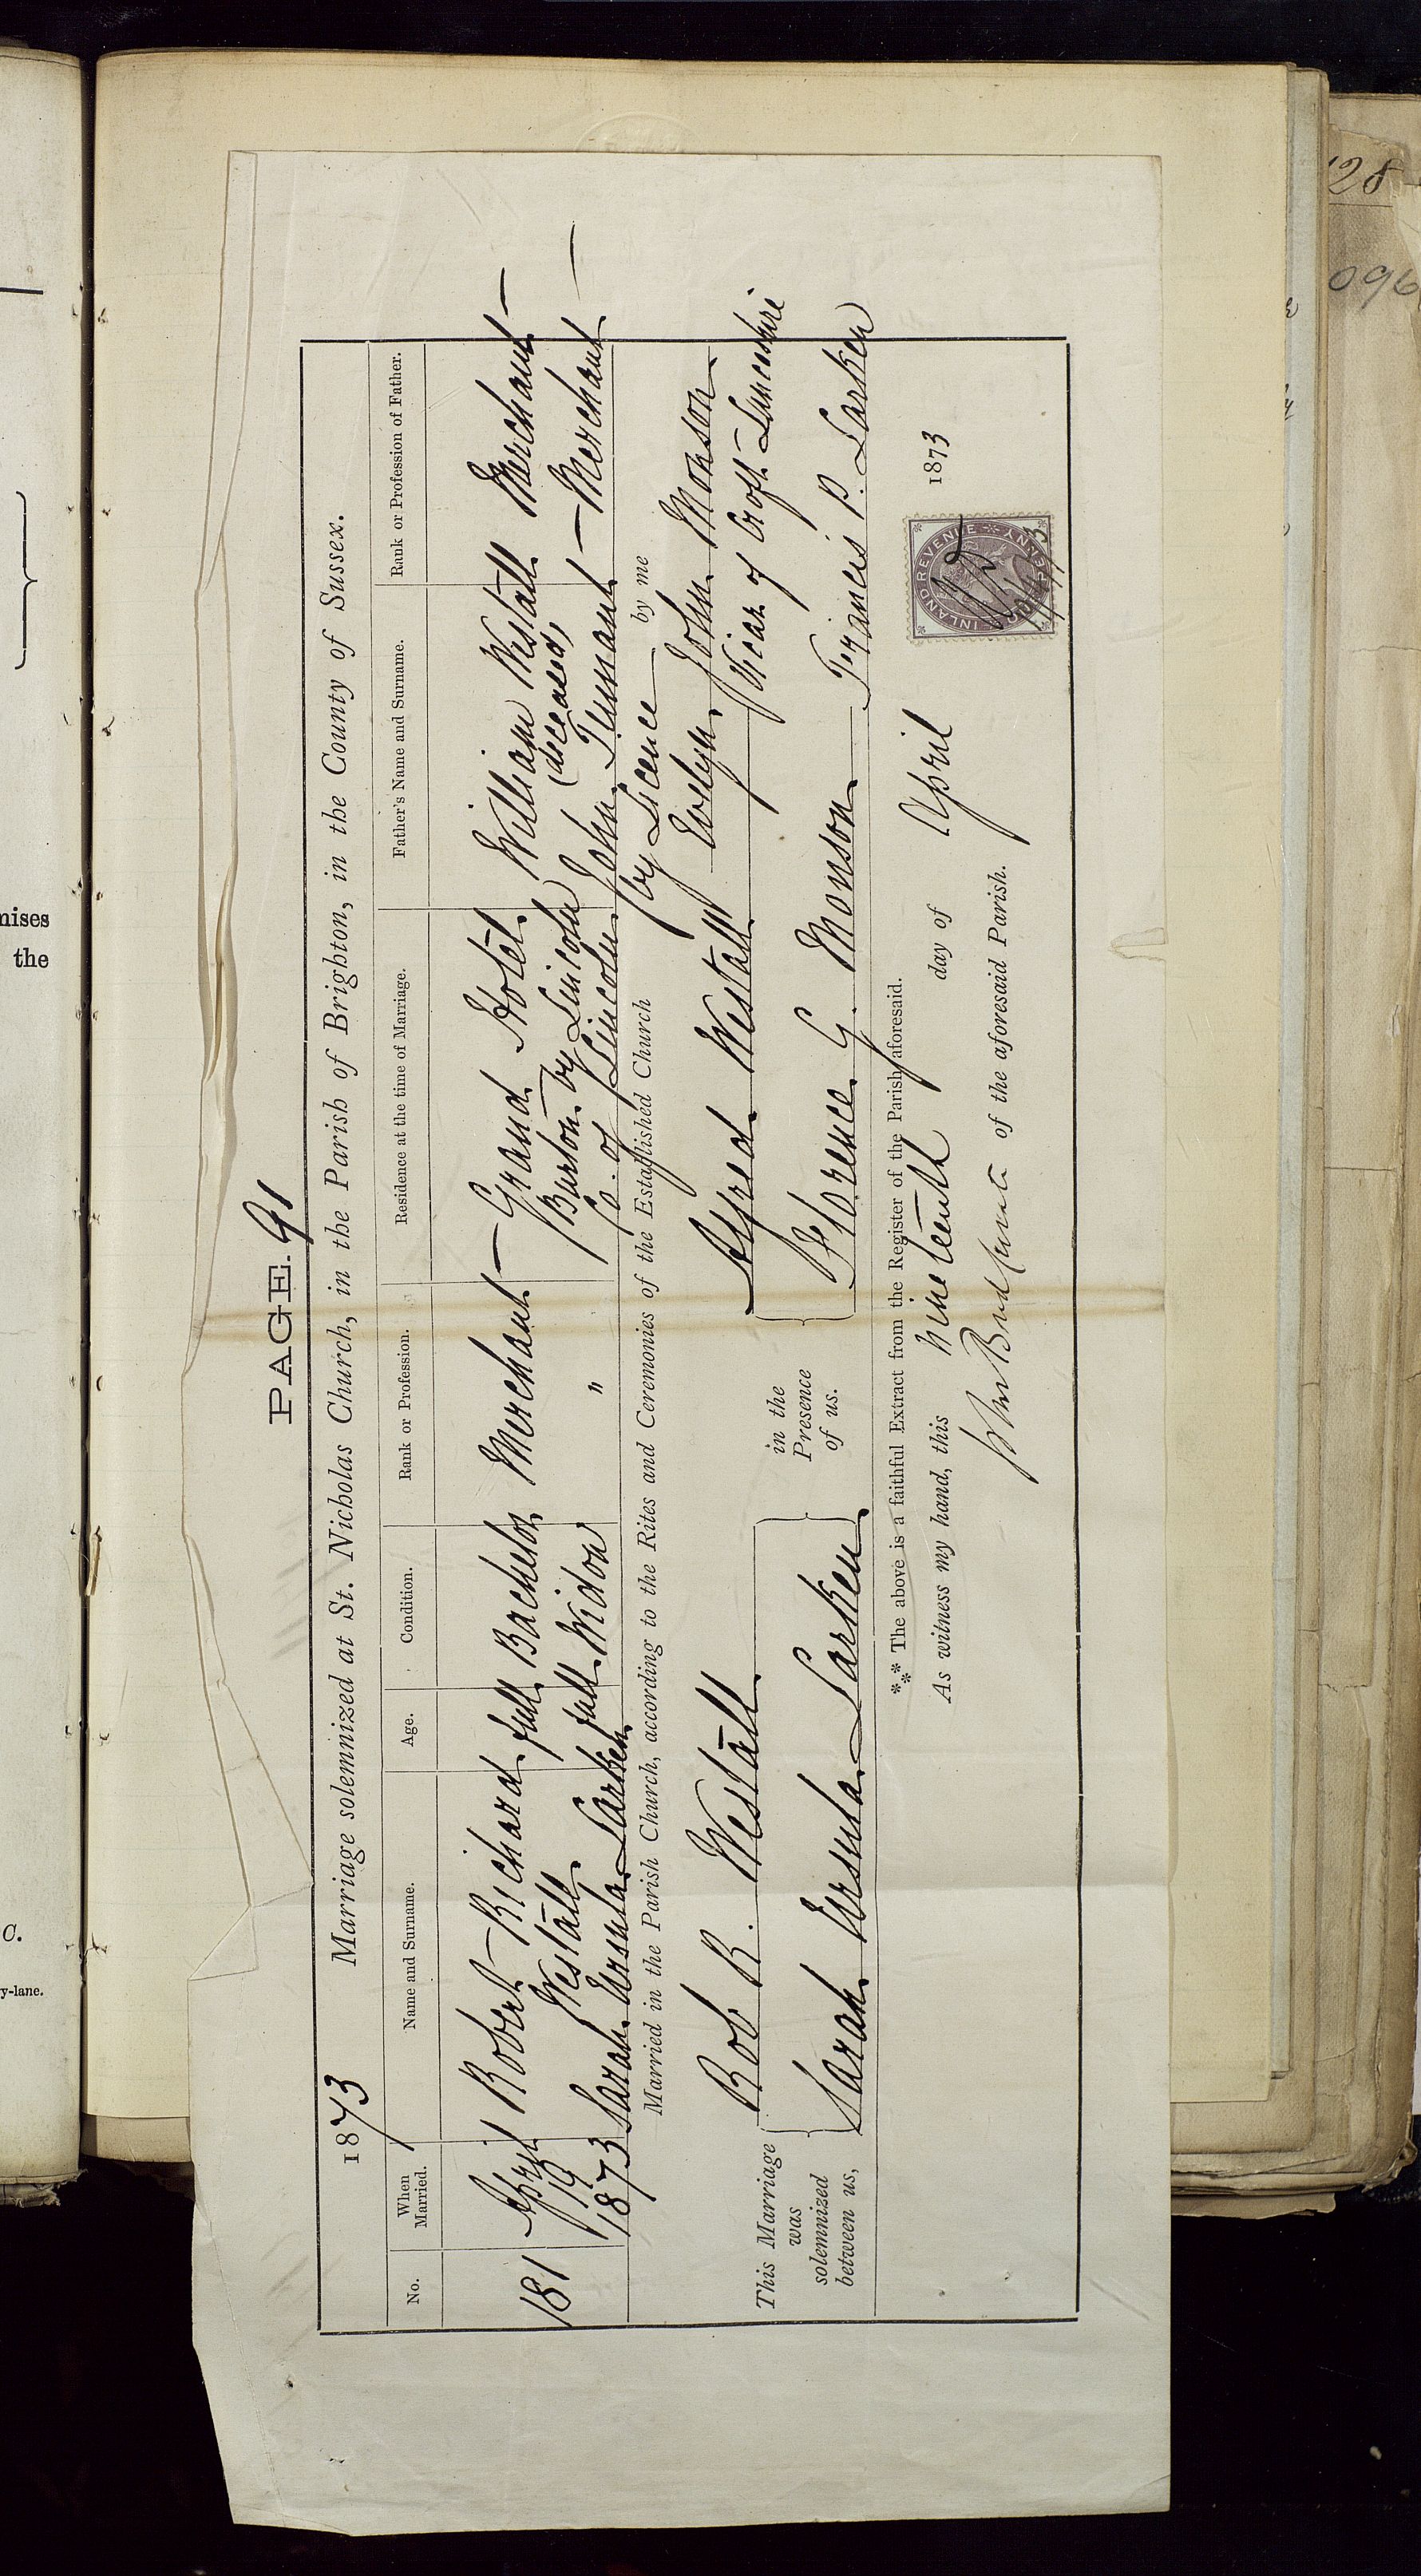 PAGE 91
1873 Marriage solemnized at St. Nicholas Church, in the Parish of Brighton, in the County of Sussex.
No. When Married. Name and Surname. Age. Condition. Rank or Profession. Residence at the time of Marriage. Father's Name and Surname. Rank or Profession of Father.
181 April 19 1873 Robert Richard Westall full Bachelor Merchant Grand Hotel William Westall (deceased) Merchant
Sarah Ursula Larken full Widow " Burton by Lincoln Co. of Lincoln John Tennant Merchant
Married in the Parish Church, according to the Rites and Ceremonies of the Established Church by Licence by me
Evelyn John Monson
Vicar of Croft Lincolnshire
This Marriage was solemnized between us,
Bob R. Westall
Sarah Ursula Larken
in the Presence of us.
Alfred Westall
Florence G. Monson Francis P. Larken
*** The above is a faithful Extract from the Register of the Parish aforesaid.
As witness my hand, this nineteenth day of April 1873
of the aforesaid Parish.
INLAND REVENUE
PENNY
mises
the
C.
y-lane.
28
096